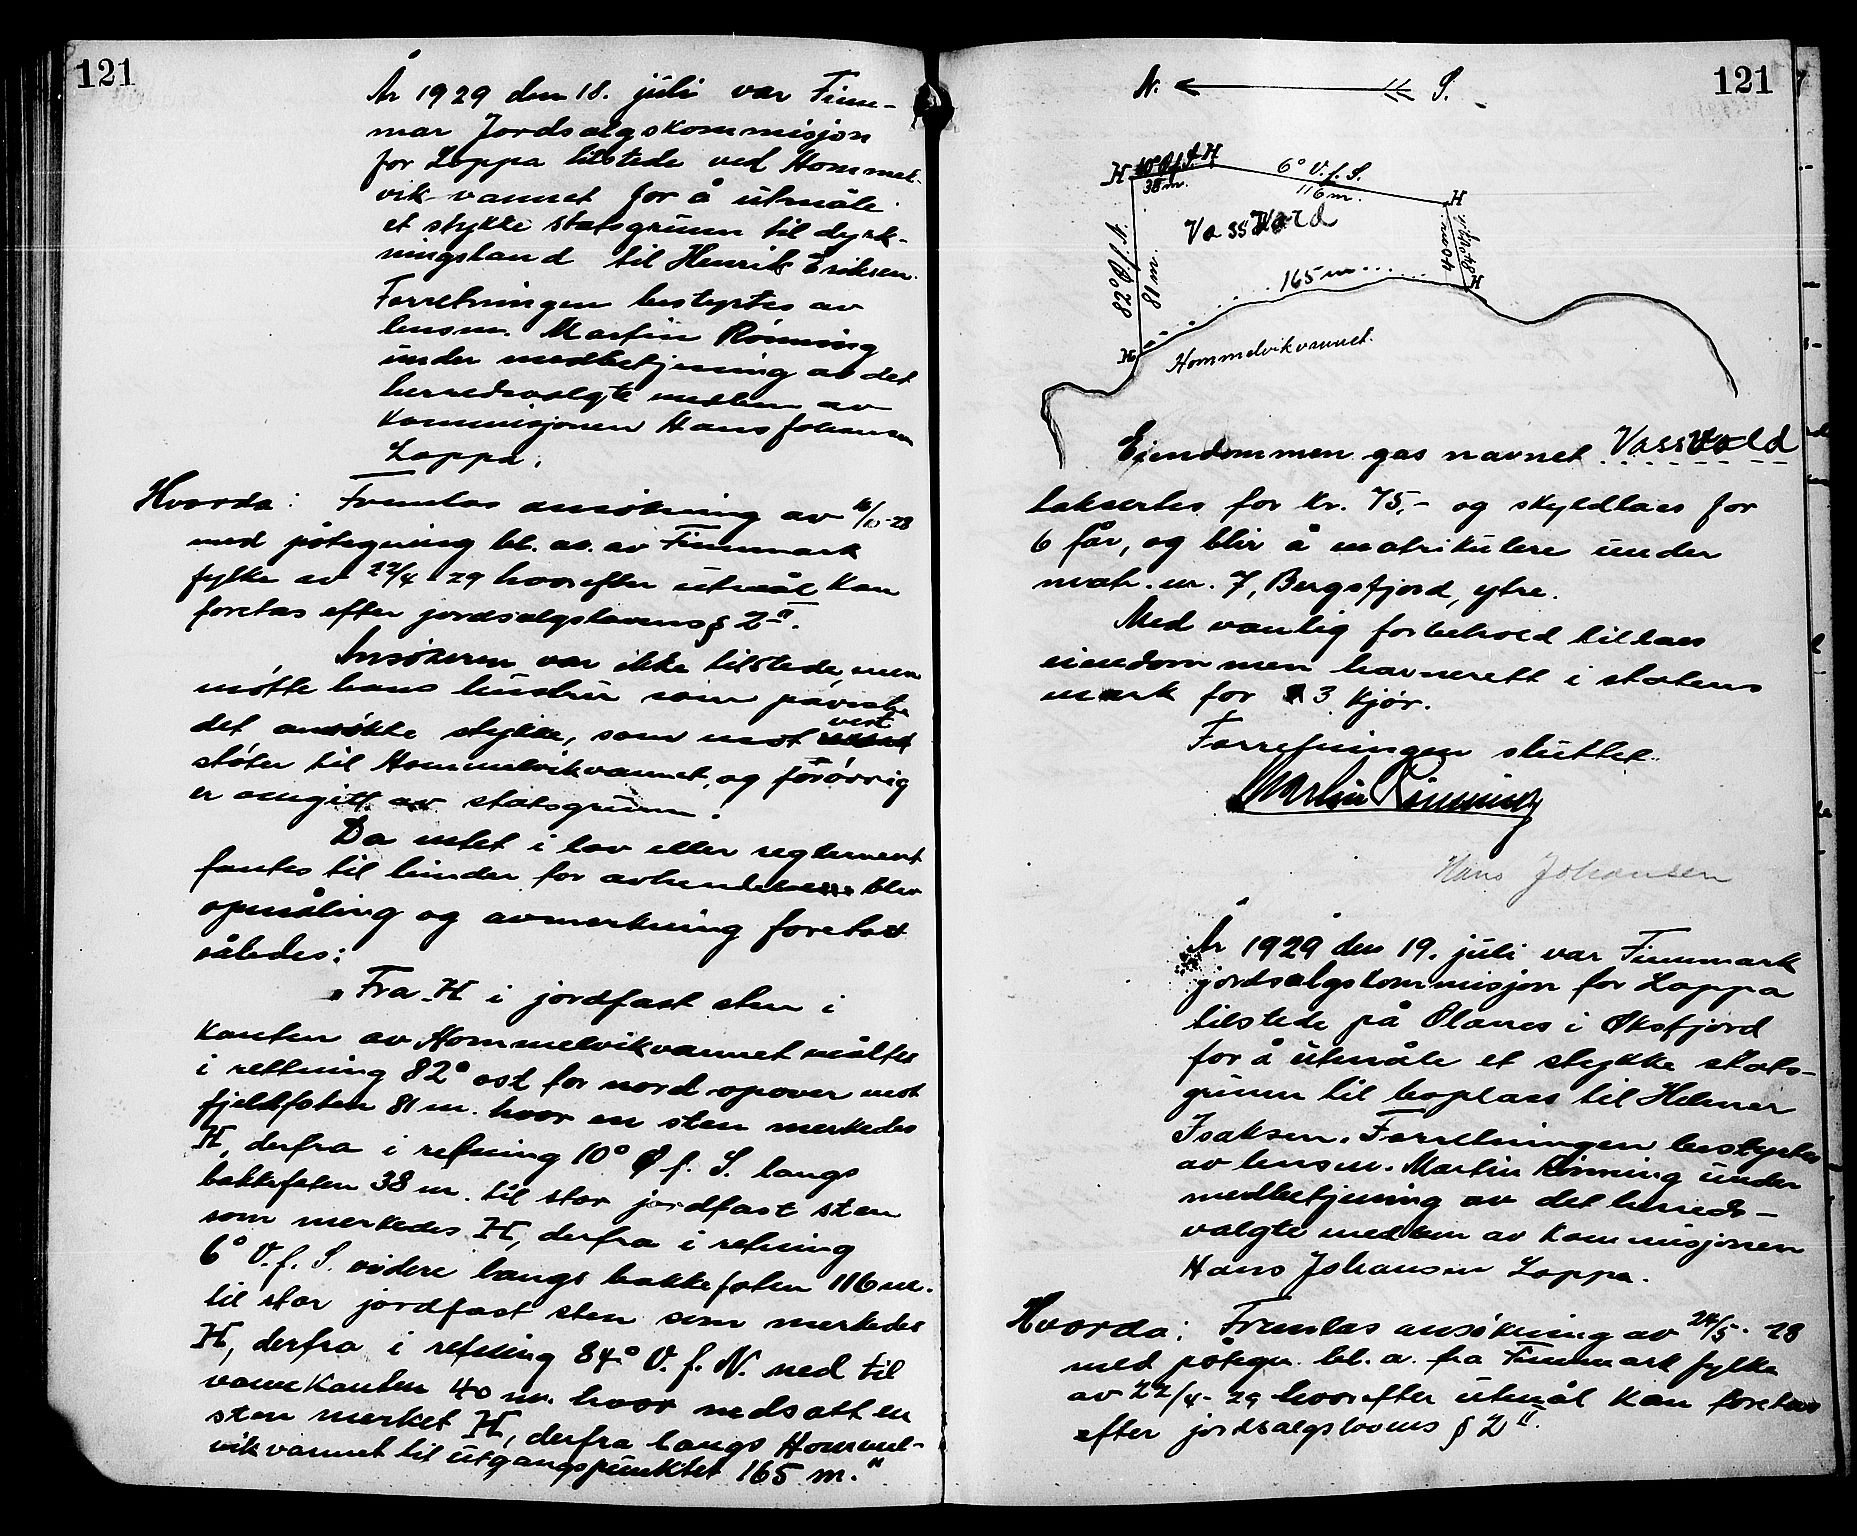 121
År 1929 den 18. juli var Finn-
mar Jordsalgskommisjon
for Loppa tilstede ved Hommel-
vik vannet for å utmåle
et stykke statsgrunn til dyrk-
ningsland til Henrik Eriksen.
Forretningen bestyrtes av
lensm. Martin Rønning
under medbetjening av det
herredsvalgte medlem av
kommisjonen Hans Johansen
Loppa.
Hvorda: Fremlas ansökning av -28
med påtegning bl. a. av Finnmark
fylke av 22/4 29 hvorefter utmål kan
foretas efter jordsalgslovens § 2II.
Ansökeren var ikke tilstede, men
møtte hans hustru som påviste
det ansøkte stykke, som mot vest
støter til Hommelvikvannet, og forøvrig
er omgitt av statsgrunn.
Da intet i lov eller reglement
fantes til hinder for avhendelse blev
opmåling og avmerkning foretat
således:
"Fra H i jordfast sten i
kanten av Hommelvikvannet måltes
i rettning 82° ost for nord opover mot
fjeldfoten 81 m. hvor en sten merkedes
H, derfra i retning 10° Ø f. S. langs
bakkefoten 38 m. til stor jordfast sten
som merkedes H, derfra i retning
6° V. f. S. videre langs bakkefoten 116 m.
til stor jordfast sten som merkedes
H, derfra i retning 84° V. f. N. ned til
vannkanten 40 m. hvor nedsatt en
sten merket H, derfra langs Hommel-
vikvannet til utgangspunktet 165 m."
121
N. S.
H 10° Ø f S. H
38 m.
6° V. f. S.
116 m.
H
Vassvold
82° Ø f N.
81 m.
165 m
40 m
84° V. f. N.
H
H
Hommelvikvannet.
Eiendommen gas navnet Vassvold
taksertes for kr. 75,- og skyldlaes for
6 får, og blir å matrikulere under
matr. nr. 7, Bergsfjord, ytre.
Med vanlig forbehold tillaes
eiendommen havnerett i statens
mark for 3 kjør.
Forretningen sluttet.
Martin Rønning
Hans Johansen
År 1929 den 19. juli var Finnmark
jordsalgskommisjon for Loppa
tilstede på Olanes i Øksfjord
for å utmåle et stykke stats-
grunn til boplass til Helmer
Isaksen. Forretningen bestyrtes
av lensm. Martin Rønning under
medbetjening av det herreds-
valgte medlem av kommisjonen
Hans Johansen Loppa.
Hvorda: Fremlas ansökning av 24/5. 28
med påtegn. bl. a. fra Finnmark fylke
av 22/4- 29 hvorefter utmål kan foretas
efter jordsalgslovens § 2II.